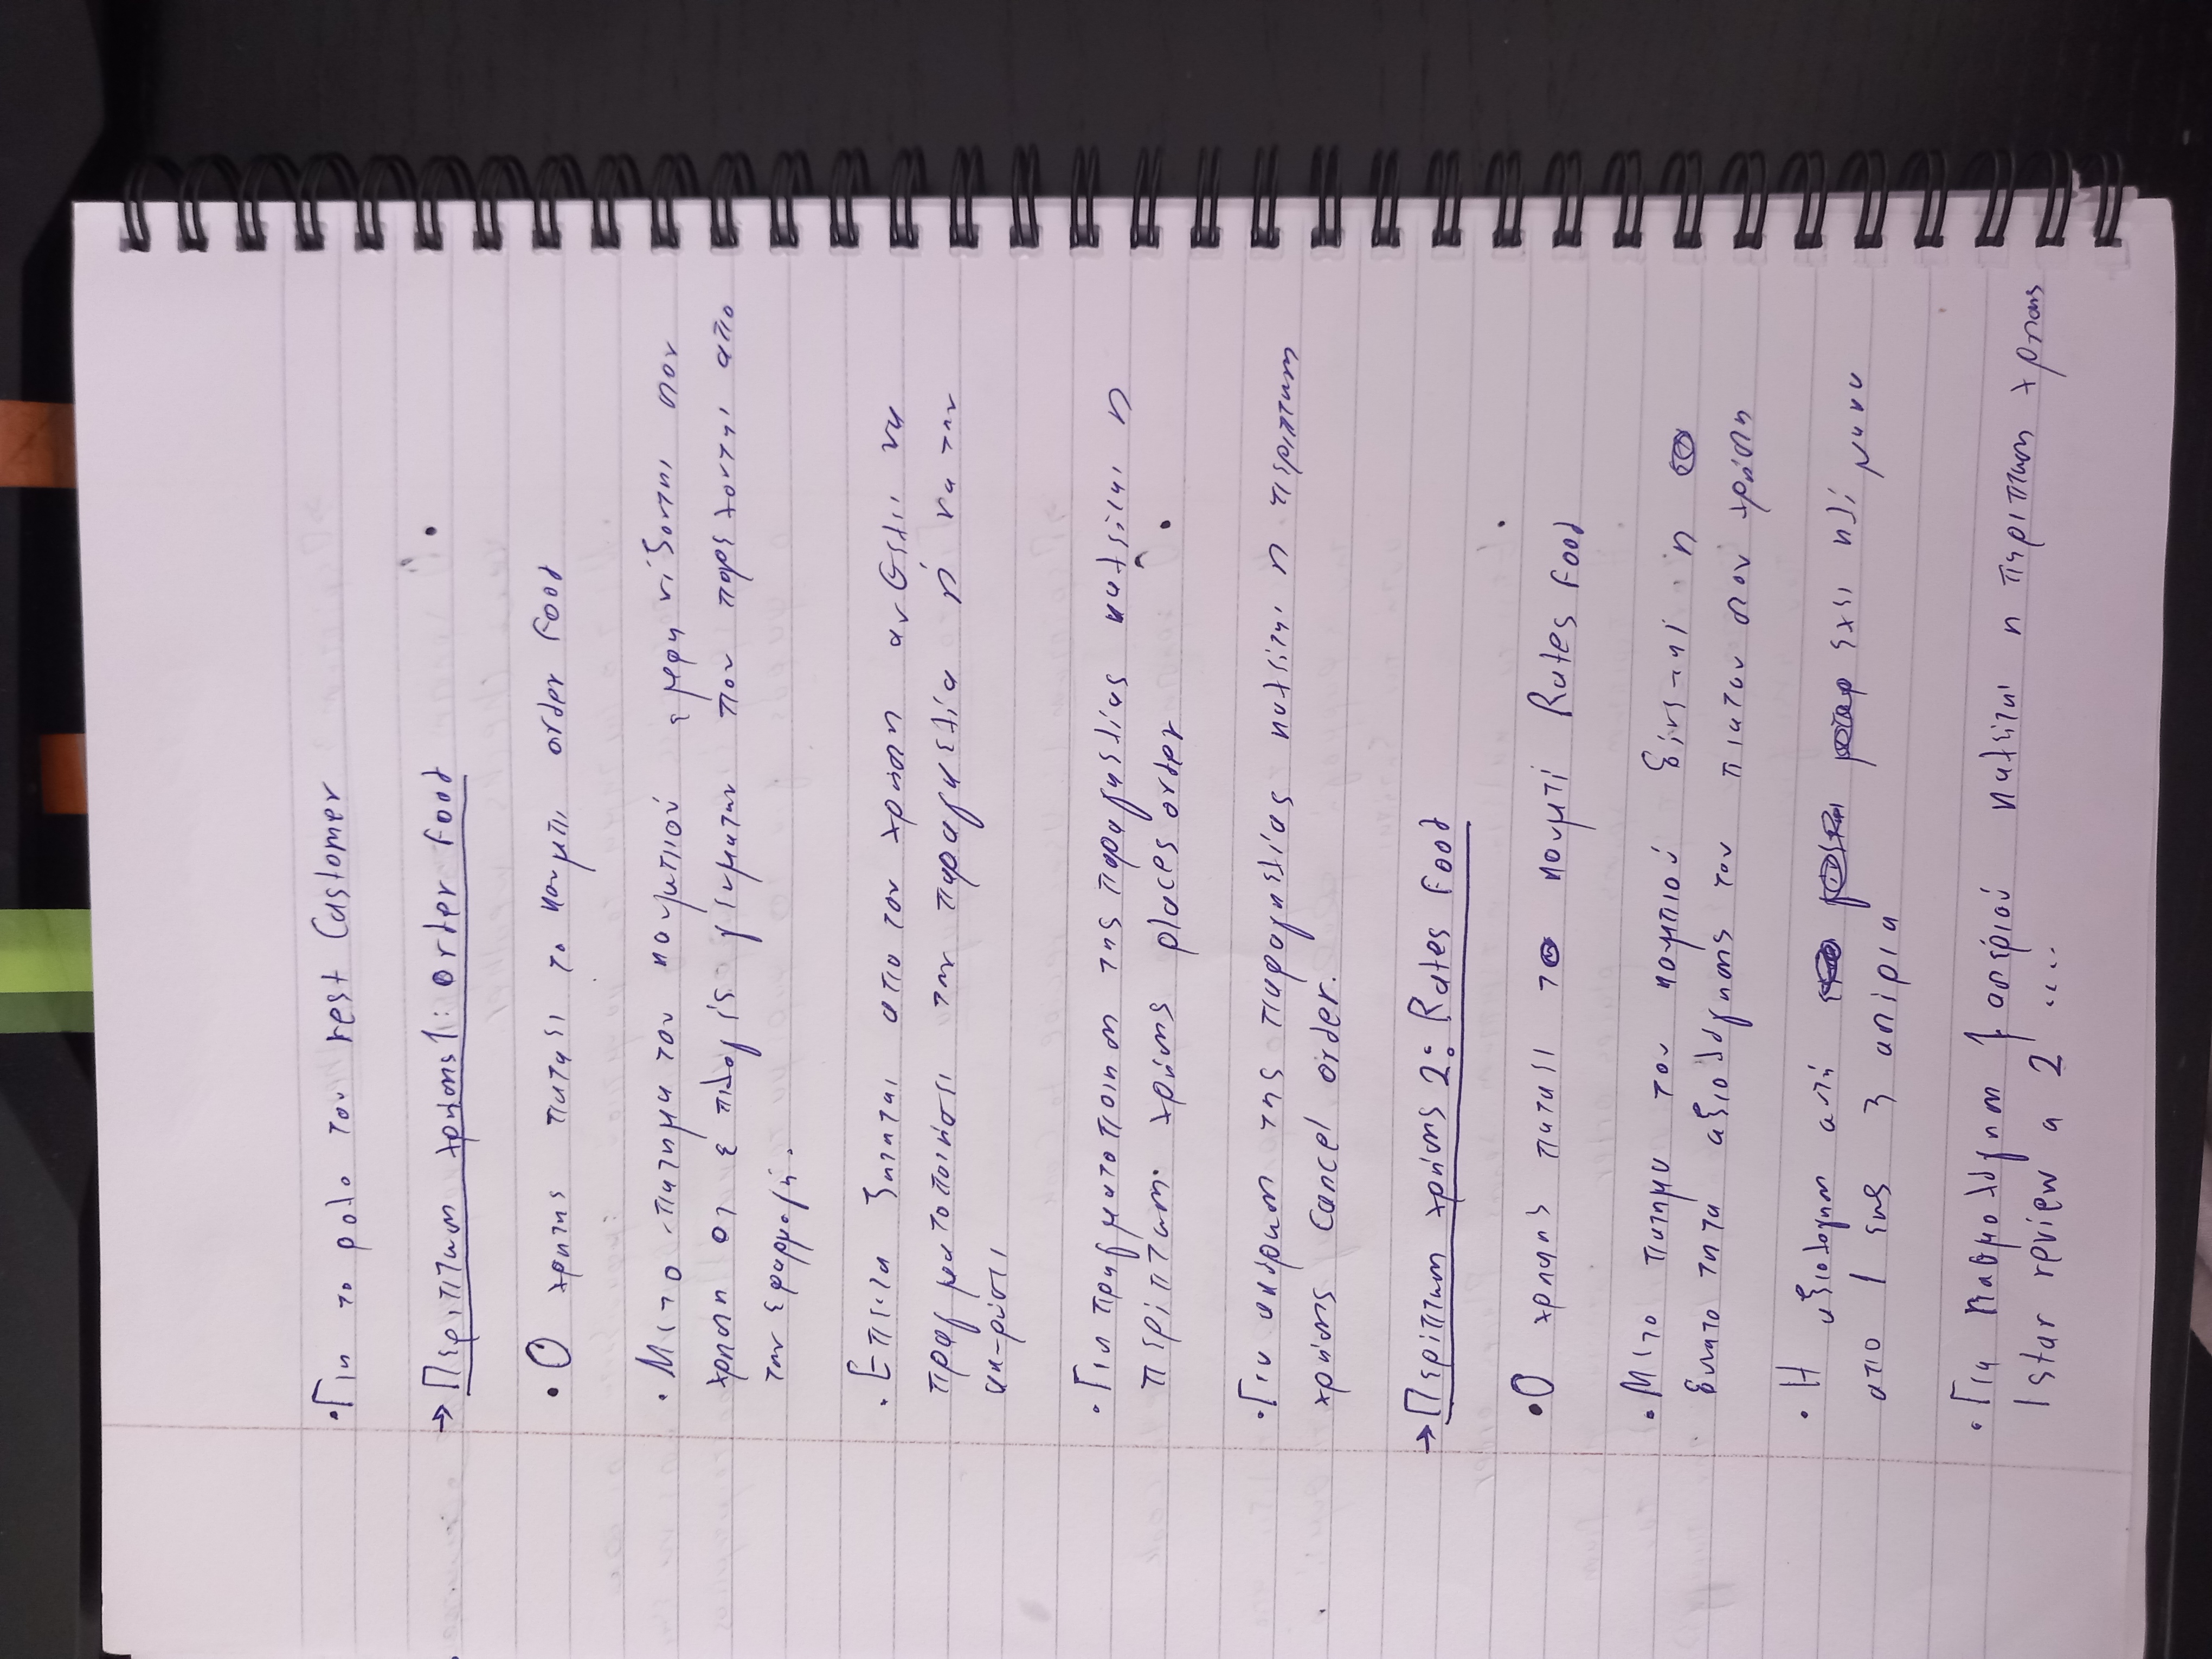 •Για το ρολο του rest Customer
→ Περιπτωση χρήσης 1: order food
• Ο χρητης παταει το κουμπι order food
• Με το πατημα του κουμπιού εμφανίζονται στον
χρηστη οι επιλογές γευματων που παρέχονται απο
την εφαρμογή.
• Επειτα ζητηται απο τον χρήστη αν θελει να
πραγματοποιήσει την παραγκελία ή να την
ακυρώσει
• Για πραγματοποιηση της παραγκελίας καλείται η
περίπτωση χρήσης places order
• Για ακύρωση της παραγκελίας καλείται η περιπτωση
χρήσης Cancel order.
→ Περίπτωση χρήσης 2: Rates food
• Ο χρηστης παταει το κουμπί Rates food
• Με το πατημα του κουμπιού δίνεται η
δυνατοτητα αξιολόγησης του πιατου στον χρήστη
• Η αξιολογηση αυτή έχει κλίμακα
απο 1 εως 3 αστέρια
• Για βαθμολόγηση 1 αστέριού καλείται η περιπτωση χρησης
1 star review a 2 ....